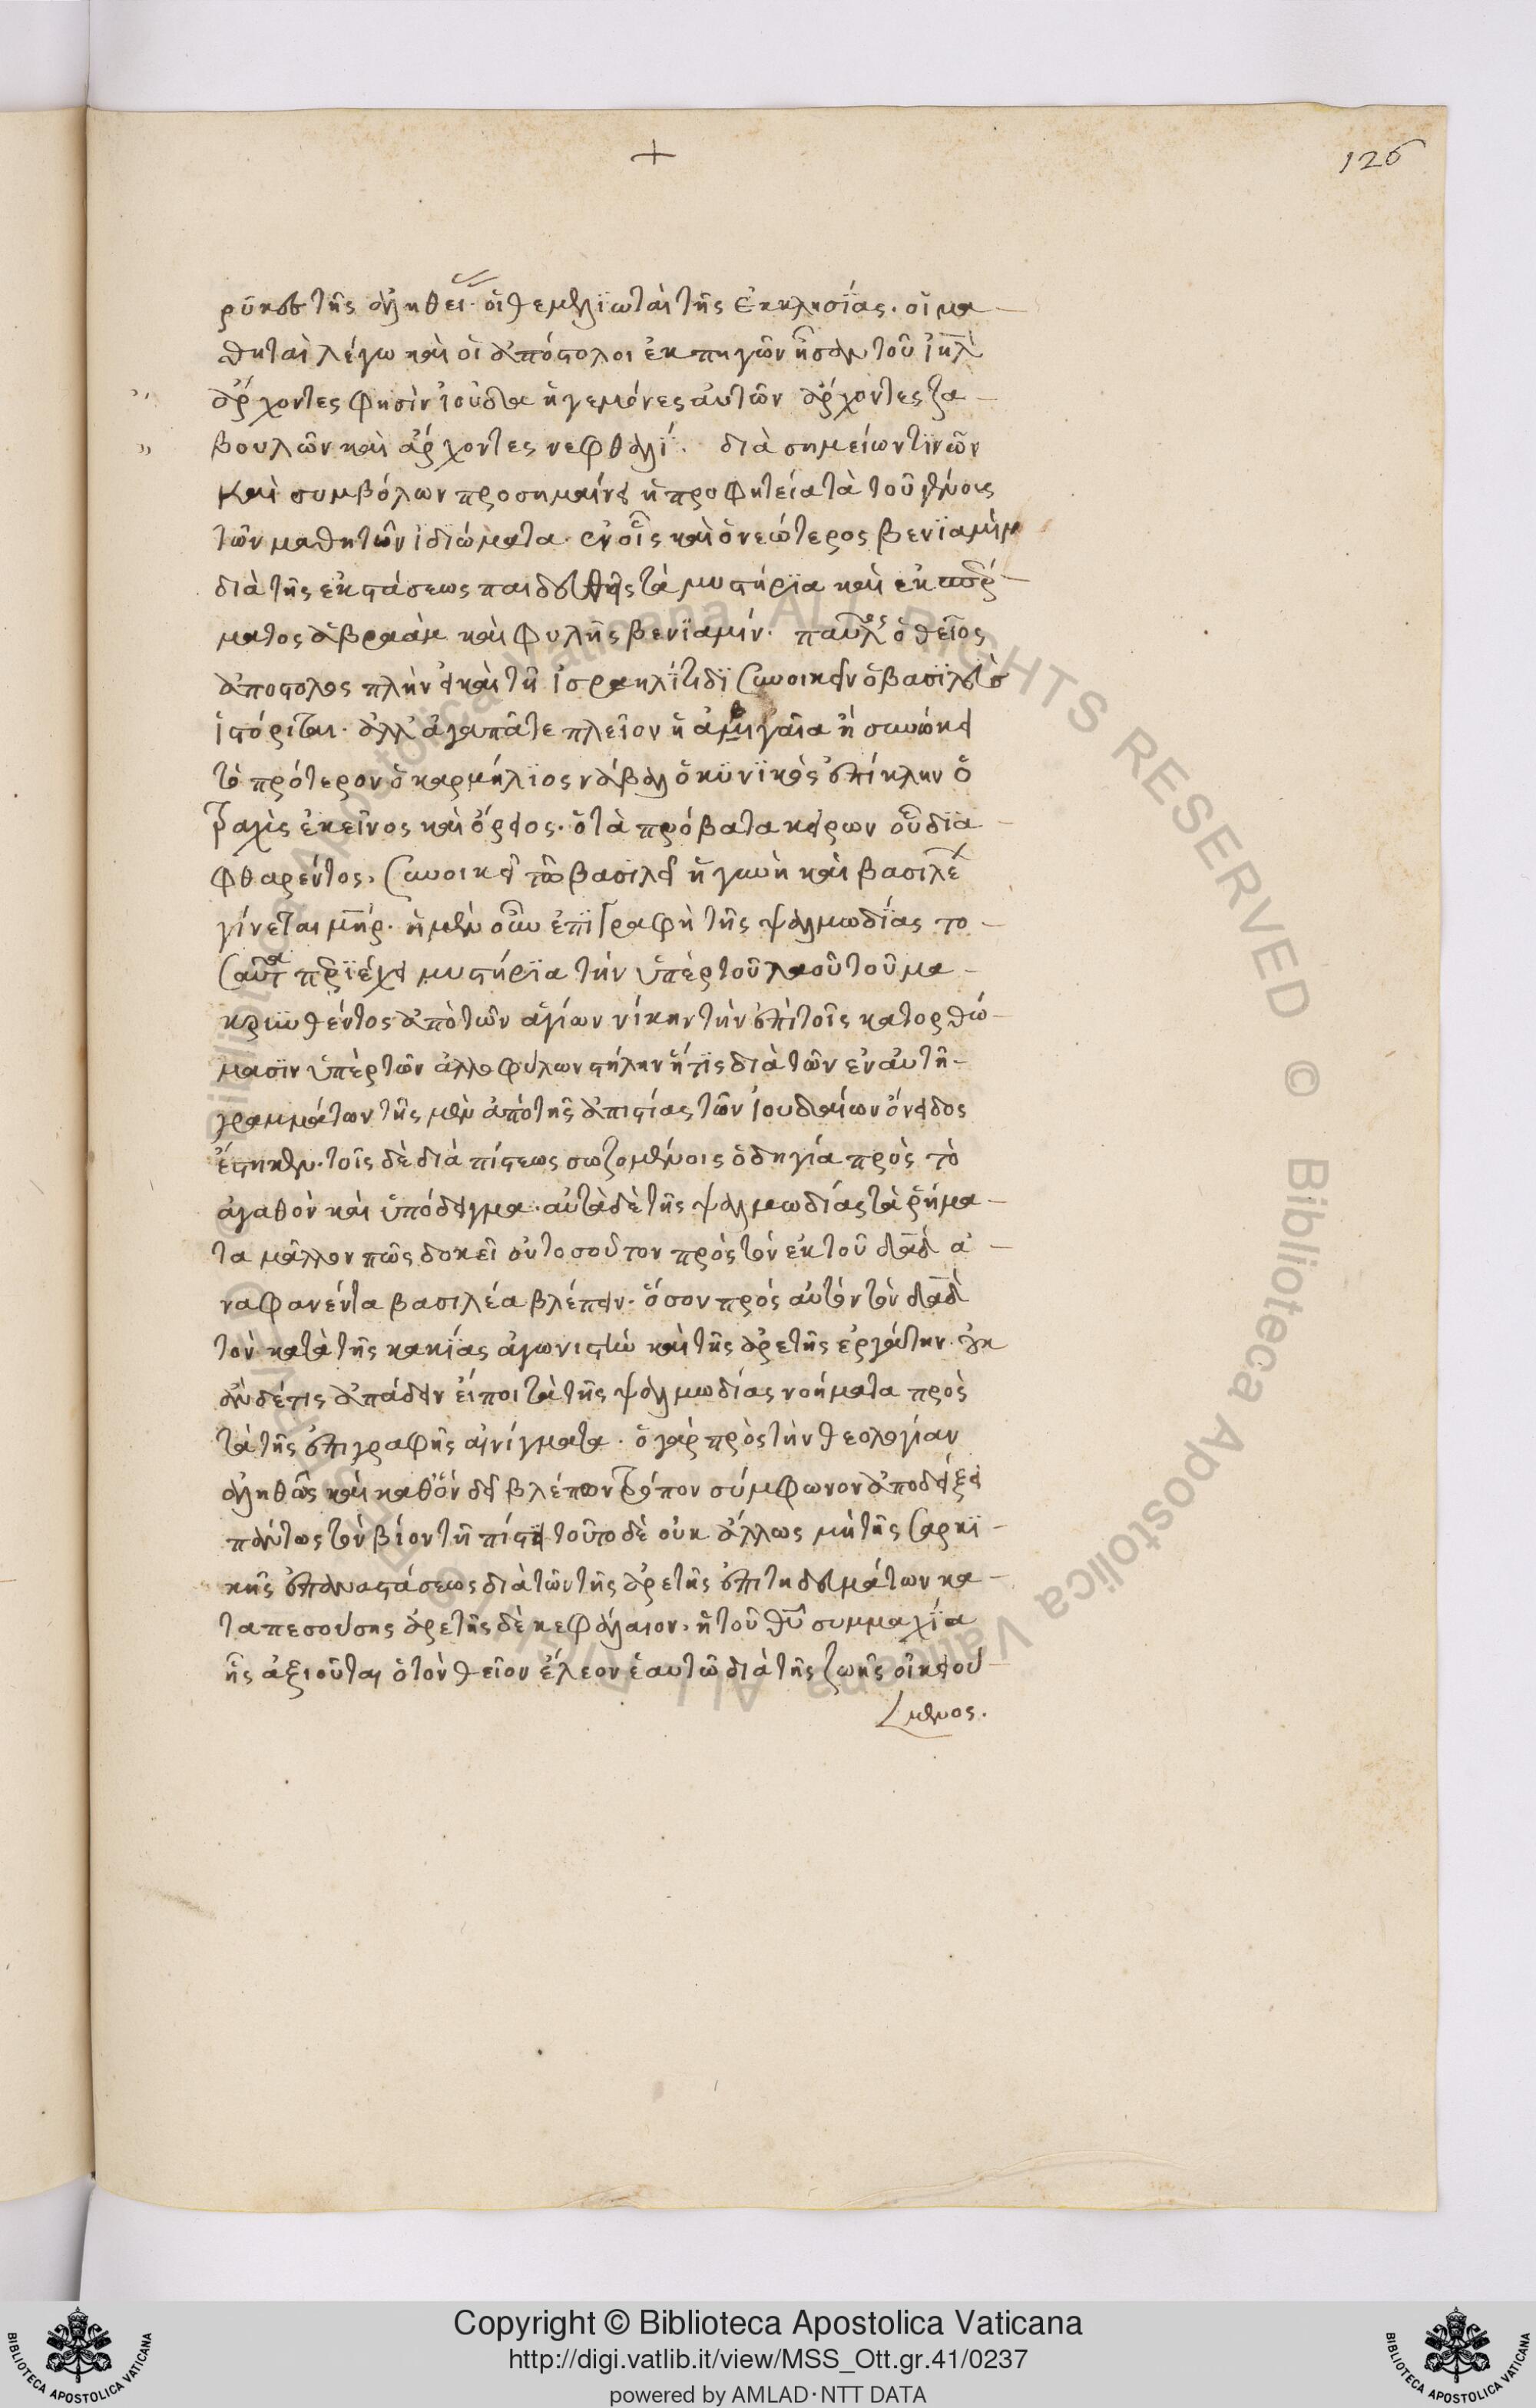 +
126
ρύκων τῆς ἀληθεί· οἱ θεμελϊωταὶ τῆς ἐκκλησίας. οἱ μα-
θηταὶ λέγω καὶ οἱ ἀπόστολοι ἐκ πηγῶν ἦσαν τοῦ ἰηλ
ἄρχοντες φησὶν ἰούδα ἡγεμόνες αὐτῶν ἄρχοντες ζα-
βουλὼν καὶ ἄρχοντες νεφθαλί. διὰ σημείων τινῶν
καὶ συμβόλων προσημαίνει ἡ προφητεία τὰ τοῦ γένους
τῶν μαθητῶν ἰδιώματα. ἐν οἷς καὶ ὁ νεώτερος βενϊαμὶν
διὰ τῆς ἐκστάσεως παιδευθεὶς τὰ μυστήρϊα καὶ ἐκ σπέρ-
ματος ἀβραὰμ καὶ φυλῆς βενϊαμίν. παῦλος ὁ θεῖος
ἀπόστολος πλὴν εἰ καὶ τῇ ἰσραηλίτιδϊ συνοικεῖν ὁ βασϊλεὺς
ἱστόρηται. ἀλλ' ἀγαπᾶται πλεῖον ἡ ἀβιγαία ἡ συνώκει
τὸ πρότερον ὁ καρμήλϊος νάβαλ ὁ κϋνϊκὸς ἐπίκλην ὁ
τραχὺς ἐκεῖνος καὶ ὄρειος. ὁ τὰ πρόβατα κείρων οὗ δϊα-
φθαρέντος, συνοικεῖ τῷ βασιλεῖ ἡ γυνὴ καὶ βασιλέ
γίνεται μήρ. ἡ μὲν οὖν ἐπϊγραφὴ τῆς ψαλμωδίας το-
σαῦτα πρϊέχει μυστήρϊα τὴν ὑπὲρ τοῦ λαοῦ τοῦ μα-
κρυνθέντος ἀπὸ τῶν ἁγίων νίκην τὴν ἐπὶ τοῖς κατορθώ-
μασϊν ὑπὲρ τῶν ἀλλοφύλων στήλην ἥτϊς διὰ τῶν ἐν αὐτῇ-
γραμμάτων τῆς μὲν ἀπὸ τῆς ἀπιστίας τῶν ἰουδαίων ὄνειδος
ἕστηκεν. τοῖς δὲ διὰ πίστεως σωζομένοις ὁδηγία πρὸς τὸ
ἀγαθὸν καὶ ὑπόδειγμα. αὐτὰ δὲ τῆς ψαλμωδίας τὰ ῥήμα-
τα μᾶλλον πῶς δοκεῖ οὐ τοσοῦτον πρὸς τὸν ἐκ τοῦ δαδ ἀ-
ναφανέντα βασιλέα βλέπειν. ὅσον πρὸς αὐτὸν τὸν δαδ
τὸν κατὰ τῆς κακίας ἀγωνιστὴν καὶ τῆς ἀρετῆς ἐργάτην. οὐκ
ἂν δέ τις ἀπάδειν εἴποι τὰ τῆς ψαλμωδίας νοήματα πρὸς
τὰ τῆς ἐπιγραφῆς αἰνίγματα. ὁ γὰρ πρὸς τὴν θεολογίαν
ἀληθῶς καὶ καθ' ὃν δεῖ βλέπων τρόπον σύμφωνον ἀποδείξει
πάντως τὸν βίον τῇ πίστει τοῦτο δὲ οὐκ ἄλλως μὴ τῆς σαρκϊ-
κῆς ἐπαναστάσεως διὰ τῶν τῆς ἀρετῆς ἐπιτηδευμάτων κα-
ταπεσούσης ἀρετῆς δὲ κεφάλαιον. ἡ τοῦ θυ συμμαχία
ἧς ἀξιοῦται ὁ τὸν θεῖον ἔλεον ἑαυτῷ διὰ τῆς ζωῆς οἰκειού-
μενος.
Copyright © Biblioteca Apostolica Vaticana
http://digi.vatlib.it/view/MSS_Ott.gr.41/0237
powered by AMLAD·NTT DATA